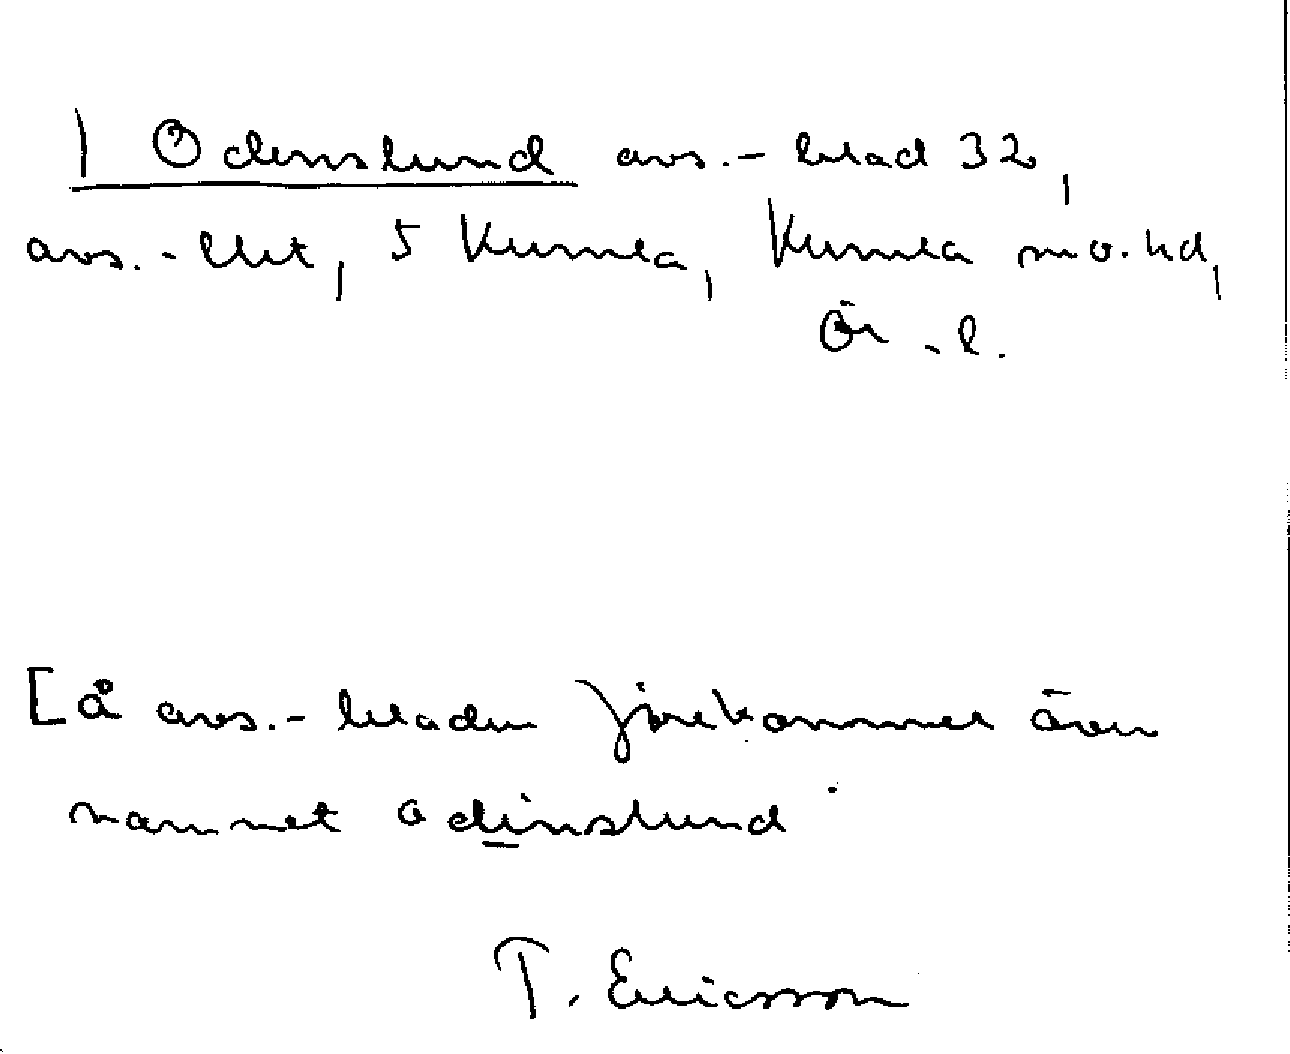 | Odenslund avs.-blad 32,
avs.-lht, 5 Kumla, Kumla m o. hd,
Ör .l.
[å avs.-bladen förekommer även
namnet Odinslund
T. Ericsson